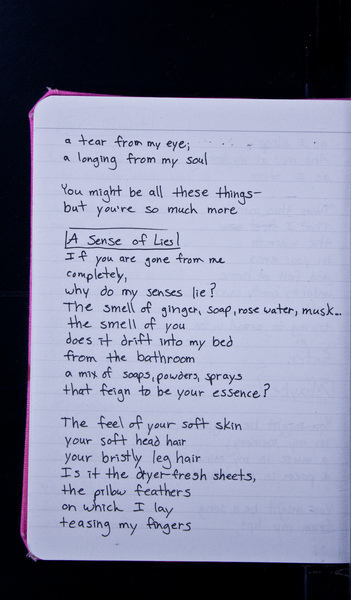 a tear from my eye;
a longing from my soul
You might be all these things—
but you're so much more
A Sense of Lies
If you are gone from me
completely,
why do my senses lie?
The smell of ginger, soap, rose water, musk...
the smell of you
does it drift into my bed
from the bathroom
a mix of soaps, powders, sprays
that feign to be your essence?
The feel of your soft skin
your soft head hair
your bristly leg hair
Is it the dryer-fresh sheets,
the pillow feathers
on which I lay
teasing my fingers